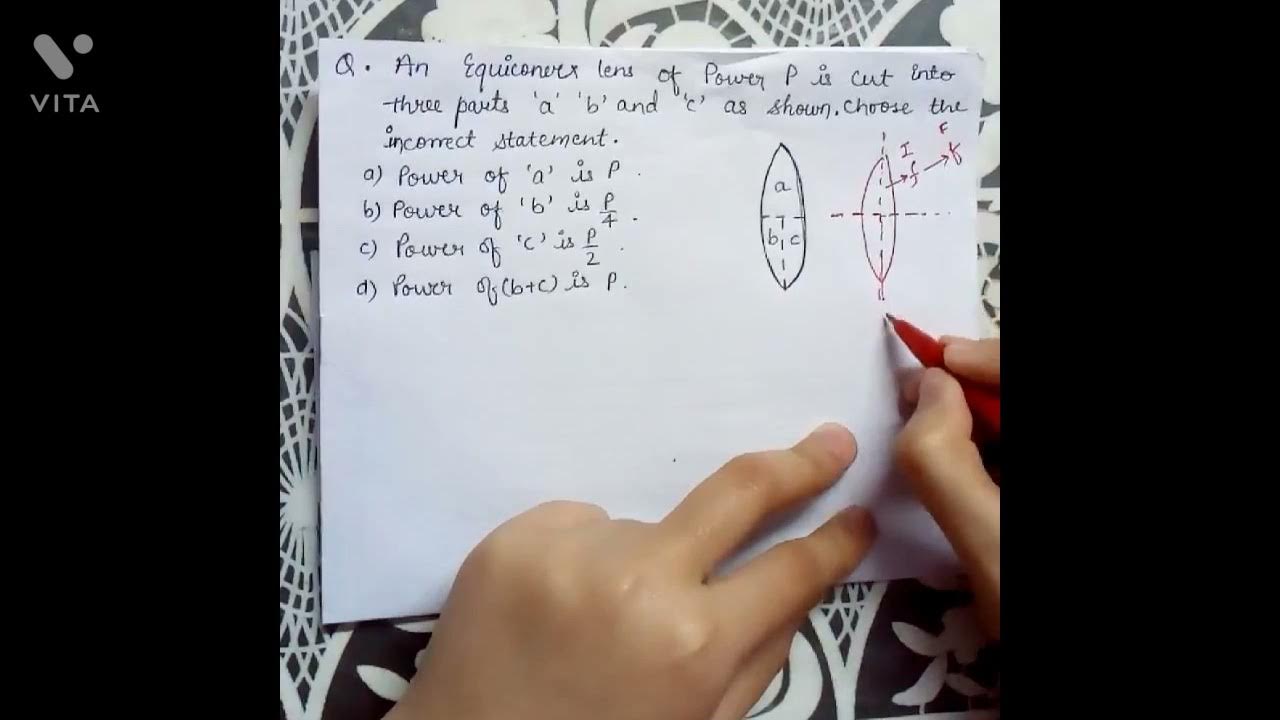 VITA
Q. An Equiconvex lens of Power P is cut into
three parts 'a' 'b' and 'c' as shown. Choose the
incorrect statement.
a) Power of 'a' is P.
b) Power of 'b' is P/4.
c) Power of 'c' is P/2.
d) Power of (b+c) is P.
a
b c
I